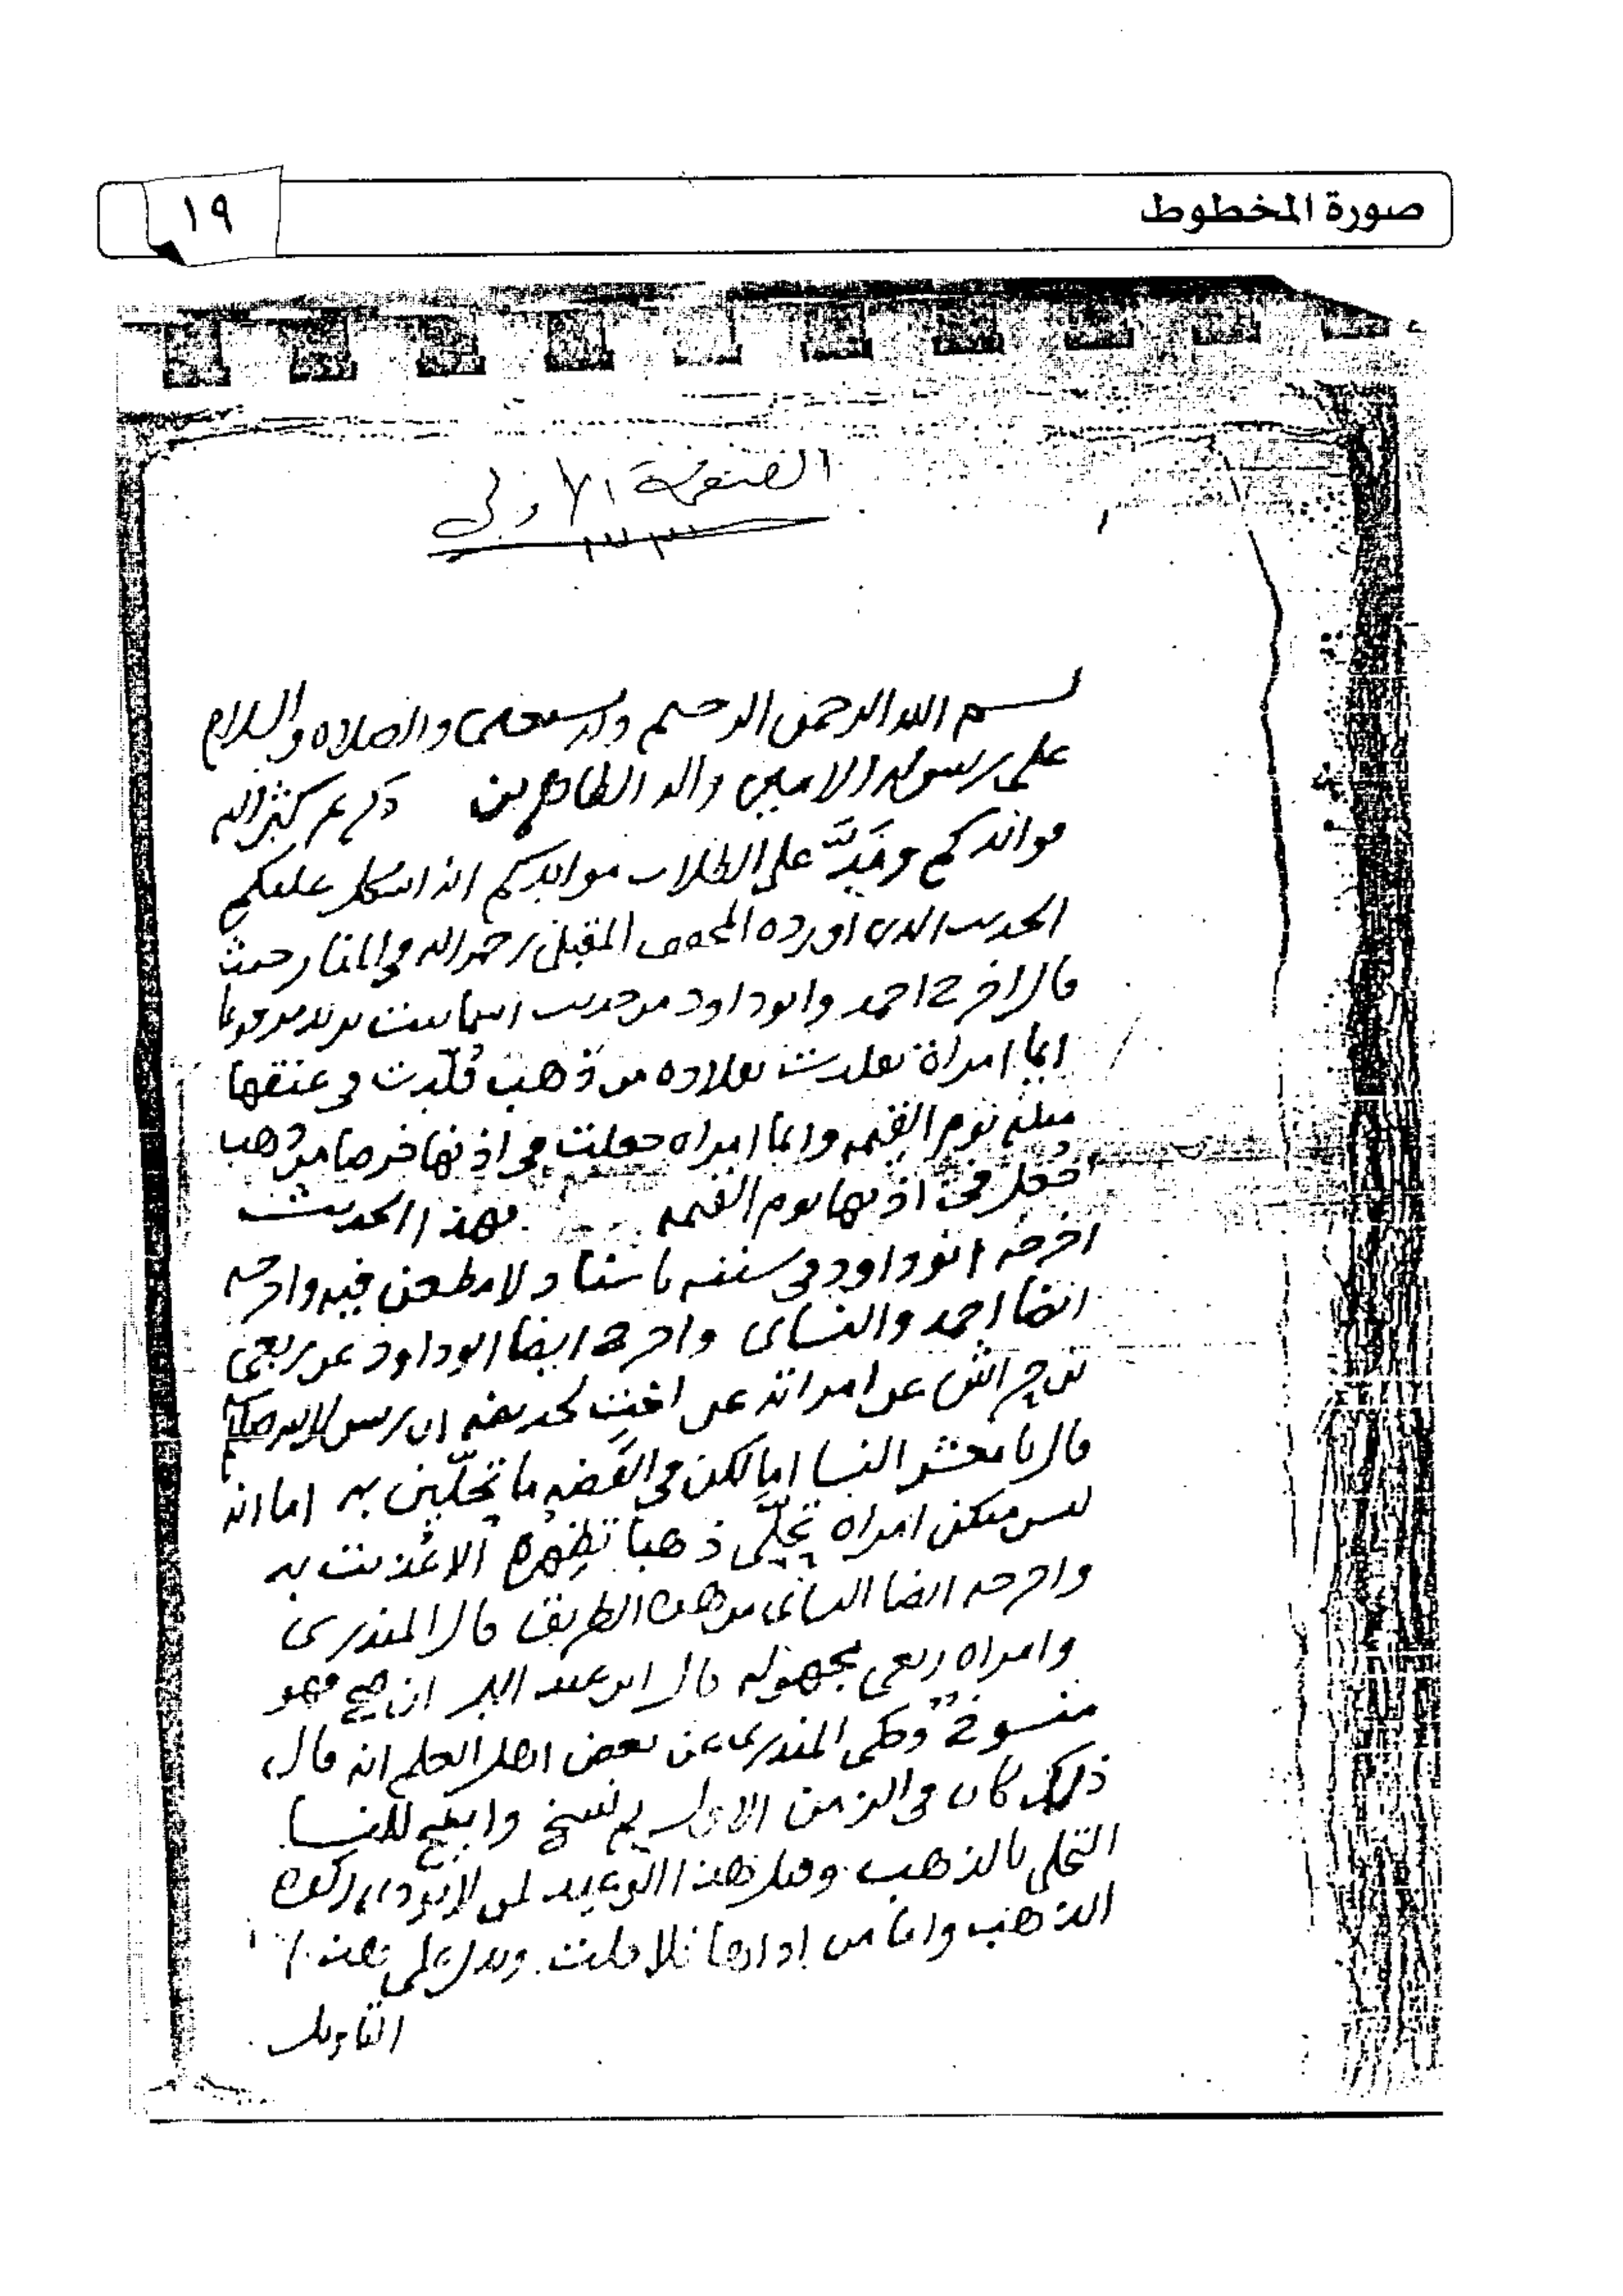 صورة المخطوط
١٩
الصفحة الأولى
بسم الله الرحمن الرحيم وبه نستعين والصلاه والسلام
على رسوله الامين واله الطاهرين ذكرتم كثر الله
فوائدكم ومَدَّ على الطلاب موائدكم انه اشكل عليكم
الحديث الذي اورده المحقق المقبلي رحمه الله في المنار حيث
قال اخرج احمد وابو داود من حديث اسما بنت يزيد مرفوعا
ايما امراة تقلدت بقلاده من ذهب قُلّدت في عنقها
مثله يوم القيمه وايما امراه جعلت في اذنها خرصا من ذهب
جُعل في اذنها يوم القيمه فهذا الحديث
اخرجه ابو داود في سننه باسناد لا مطعن فيه واخرجه
ايضا احمد والنساي واخرج ايضا ابو داود عن ربعي
بن حراش عن امراته عن اخت لحذيفه ان رسول الله صلى
قال يا معشر النسا اما لكن في الفضه ما تحلّين به اما انه
ليس منكن امراه تحلّى ذهبا تظهره الا عُذبت به
واخرجه ايضا النساى من هذه الطريق قال المنذرى
وامراه ربعي مجهوله قال ابن عبد البر ان صح فهو
منسوخ وحكى المنذرى عن بعض اهل العلم انه قال
ذلك كان في الزمن الاول ثم نسخ وابيح للنسا
التحلي بالذهب وقيل هذا الوعيد لمن لا يودي زكوه
الذهب واما من اداها فلا ويدل على هذا
التاويل